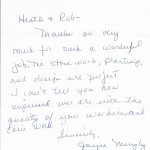 Heath & Rob -
Thanks so very
much for such a wonderful
job. The stone work, planting,
and design are perfect.
I can't tell you how
impressed we are with the
quality of your workers and
their work.
Sincerely,
Jayne Murphy